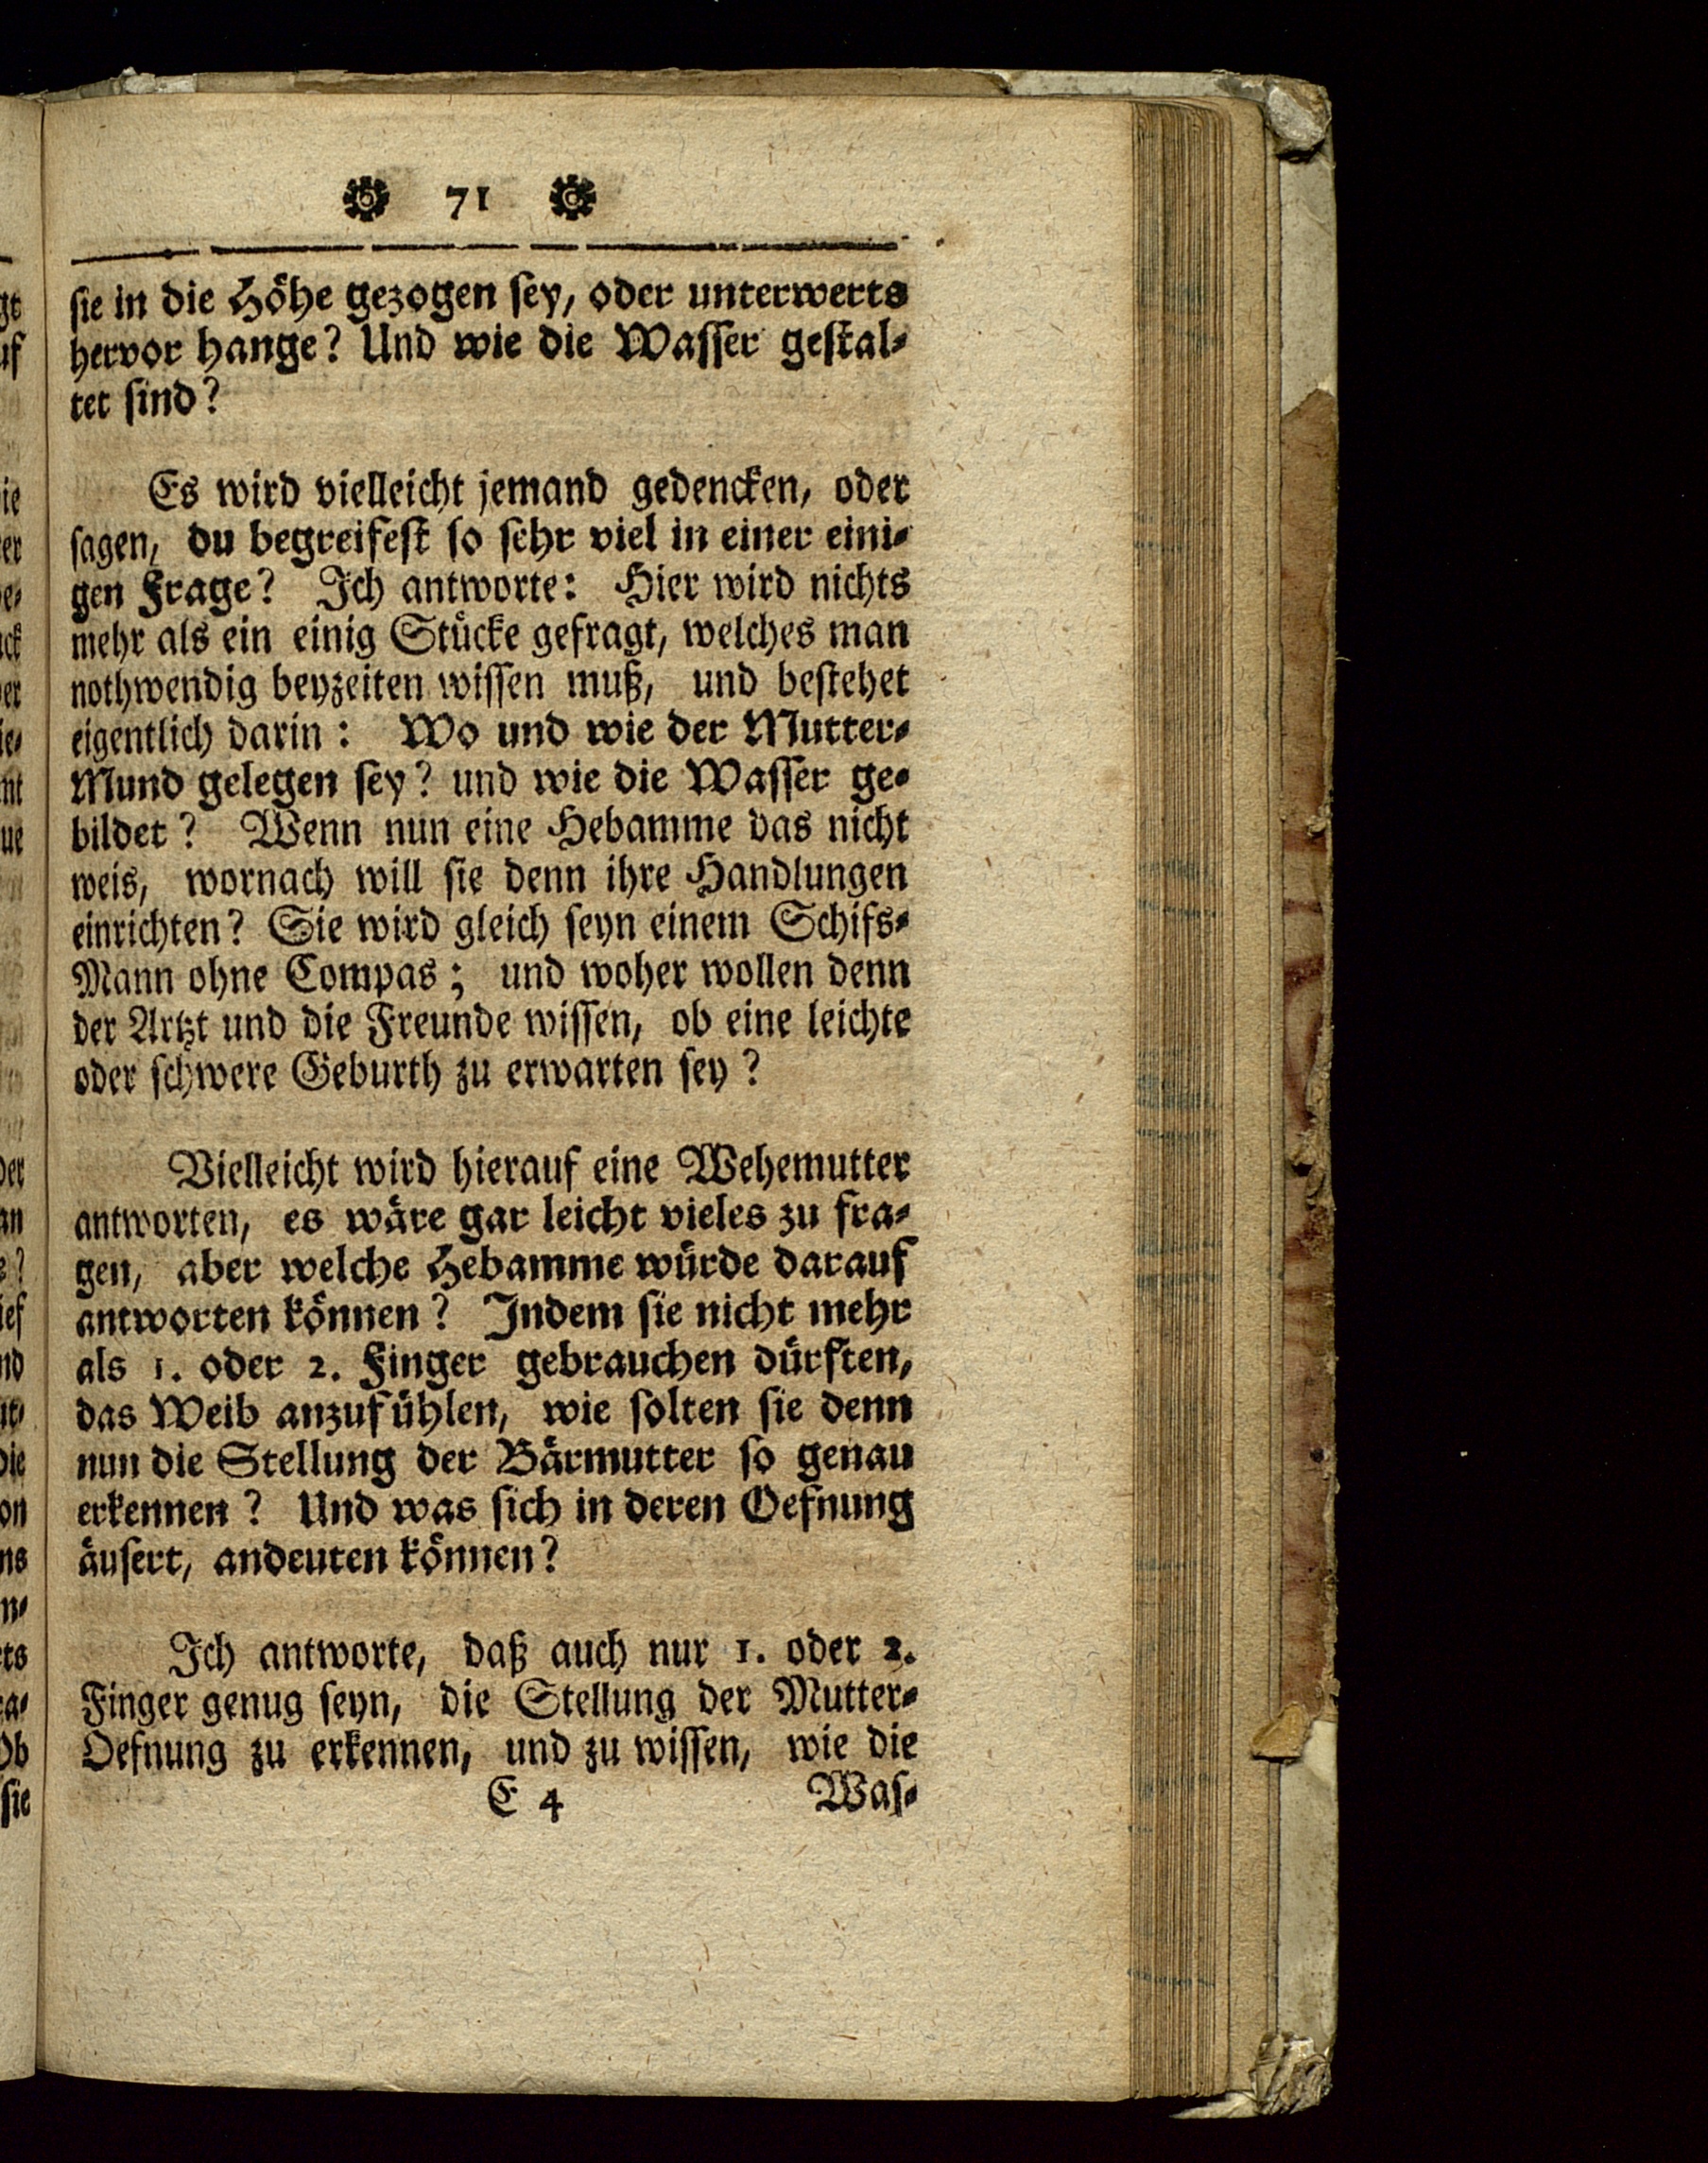 71
sie in die Höhe gezogen sey, oder unterwerts
hervor hange? Und wie die Wasser gestal-
tet sind?
Es wird vielleicht jemand gedencken, oder
sagen, du begreifest so sehr viel in einer eini-
gen Frage? Ich antworte: Hier wird nichts
mehr als ein einig Stücke gefragt, welches man
nothwendig beyzeiten wissen muß, und bestehet
eigentlich darin: Wo und wie der Mutter-
Mund gelegen sey? und wie die Wasser ge-
bildet? Wenn nun eine Hebamme das nicht
weis, wornach will sie denn ihre Handlungen
einrichten? Sie wird gleich seyn einem Schifs-
Mann ohne Compas; und woher wollen denn
der Artzt und die Freunde wissen, ob eine leichte
oder schwere Geburth zu erwarten sey?
Vielleicht wird hierauf eine Wehemutter
antworten, es wäre gar leicht vieles zu fra-
gen, aber welche Hebamme würde darauf
antworten können? Indem sie nicht mehr
als 1. oder 2. Finger gebrauchen dürften,
das Weib anzufühlen, wie solten sie denn
nun die Stellung der Bärmutter so genau
erkennen? Und was sich in deren Oefnung
äusert, andeuten können?
Ich antworte, daß auch nur 1. oder 2.
Finger genug seyn, die Stellung der Mutter-
Oefnung zu erkennen, und zu wissen, wie die
E 4 Was-